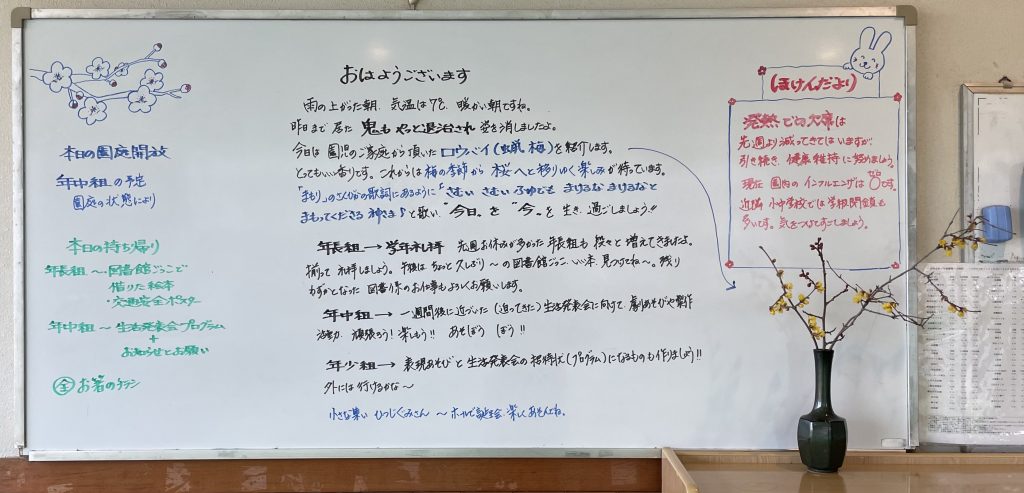 本日の園庭開放
年中組の予定
園庭の状態により
本日の持ち帰り
年長組〜図書館ごっこで
借りた絵本
・交通安全ポスター
年中組〜生活発表会プログラム
+
お知らせとお願い
全 お箸のチラシ
おはようございます
雨の上がった朝、気温は7℃、暖かい朝ですね。
昨日まで居た 鬼も やっと退治され 姿を消しましたよ。
今日は 園児のご家庭から頂いた ロウバイ(蝋梅)を紹介します。
とてもいい香りです。これからは梅の季節から 桜へと移りゆく楽しみが待っています。
「まもり」のさんびかの歌詞にあるように「さむい さむい ふゆでも まけるな まけるなと
まもってくださる 神さま♪と歌い "今日"を "今"を 生き、過ごしましょう!!
年長組→学年礼拝 先週お休みが多かった 年長組も 段々と 増えてきましたよ。
揃って 礼拝しましょう。午後は ちょっと久しぶり〜の図書館ごっこ、いい本 見つけてね〜。残り
わずかとなった 図書係のお仕事もよろしくお願いします。
年中組→一週間後に近づいた(迫ってきた)生活発表会に向けて、劇あそびや製作
活動、頑張ろう! 楽しもう!! あそぼう ぼう!!
年少組→表現あそびと生活発表会の招待状(プログラム)になるものも作りましょう!!
外には行けるかな〜
小さな集い ひつじぐみさん 〜ホールで誕生会、楽しくあそんでね。
ほけんだより
発熱での欠席は
先週より減ってきてはいますが
引き続き、健康維持に努めましょう。
現在 園内のインフルエンザは 0です。
近隣 小中学校では学級閉鎖も
多いです。気をつけてすごしましょう。